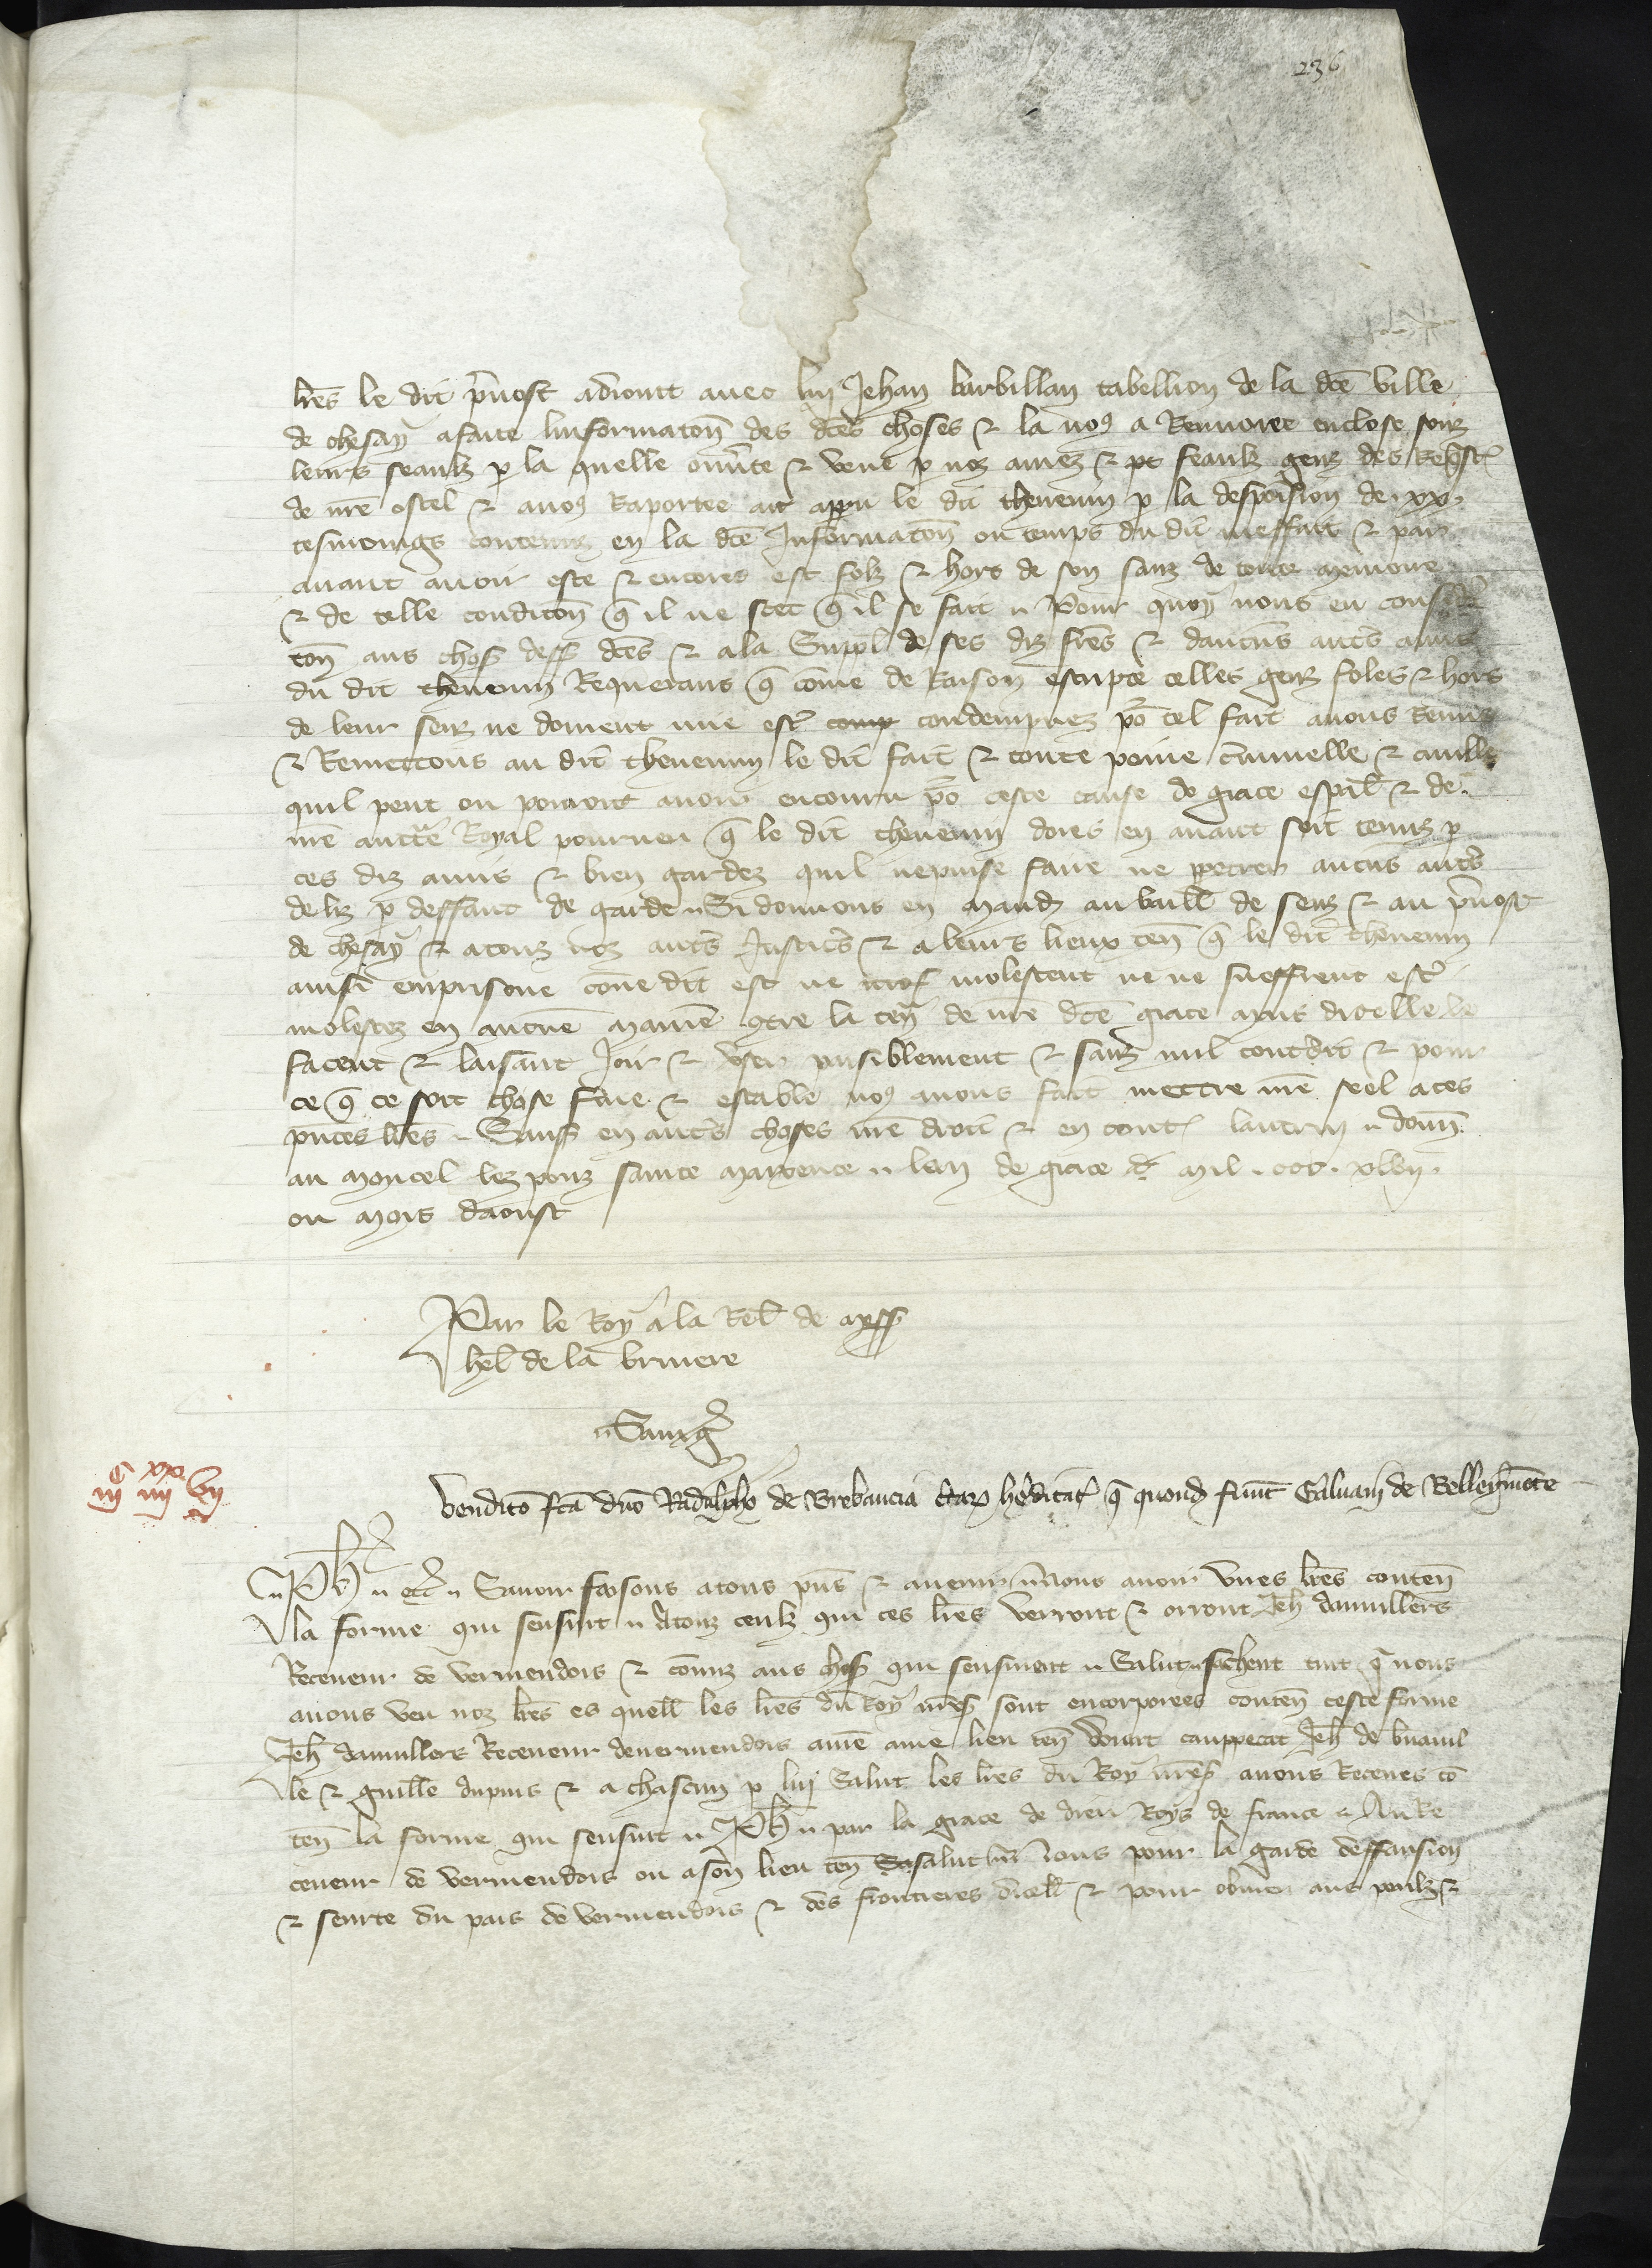 236
lres le dit prevost adiont avec lui Jehan barbillan tabellion de la dce ville
de chesay a faite linformacon des dces choses & la nos a Renvoiee enclose souz
leurs seaulz p la quelle ouverte & veue p noz amez & feaulz genz des Reqstes
de nre ostel & a nos Raportee ait apparu le dit thevenin p la desposicion de .xx.
tesmoings contenuz en la dce Informacon ou temps du dit meffait & par
avant avoir este & encores est folz & hors de son sanz de toute memoire
& de telle condicon q il ne scet q il se fait Pour quoy nous eu consider
con aus chos dess dces & a la Suppl de ses diz freres & daucuns autres amis
du dit thevenin Requerans q come de Raison escripte telles genz foles & hors
de leur senz ne doivent mie estre comp condempnez por tel fait avons Remis
& Remettons au dit thevenin le dit fait & toute peine criminelle & civille
quil peut ou pourroit avoir encouru por ceste cause de grace espal & de
nre auctte Royal pourveu q le dit thevenin dores en avant soit tenuz p
ces diz amis & bien gardez quil ne puise faire ne ppetrer aucuns autres
deliz p deffaut de garde Si donnons en mand au baill de senz & au prevost
de chesay & a touz noz autres Justiciers & a leurs lieux ten q le dit thevenin
ainsi emprisone come dit est ne molestent ne ne sueffrent estre
molestez en aucune maniere contre la ten de nre dce grace mais dicelle le
facent & laissent Joir & user paisiblement & sanz nul contdit & pour
ce q ce soit chose ferme & estable nos avons fait mettre nre seel a ces
pntes lres Sauf en autres choses nre droit & en toutes lautrui donn
au moncel lez pons sainte maxence lan de grace mil .ccc. xlvii.
ou mois daoust
Par le Roy a la Rel de mess
hel de la bruiere
Sauvig
iiic iiiixx vii
Vendico fca dno Radulpho de Brebancia hereditat q quond fuert Galvani de Bellegmonte
Ph etc Savoir faisons a tous pns & avenir nous avoir unes lres conten
la forme qui sensuit A touz ceulz qui ces lres verront & orront Jeh damvillers
Receveur de vermendois & comiz aus chos qui sensivent Salut sachent tuit q nous
avons veu noz lres es quell les lres du Roy nres sont encorporees conten ceste forme
Jeh damvillers Receveur de vermendois a nre ame lieu ten Jeh de
le & guille dupuis & a chascun p lui Salut les lres du Roy nres avons Receues con
ten la forme qui sensuit Ph par la grace de dieu Roys de france Au Re
ceveur de vermendois ou a son lieu ten Sa salut nous pour la garde deffansion
& seurte du pais de vermendois & des frontieres dicell & pour obvier aus perilz &